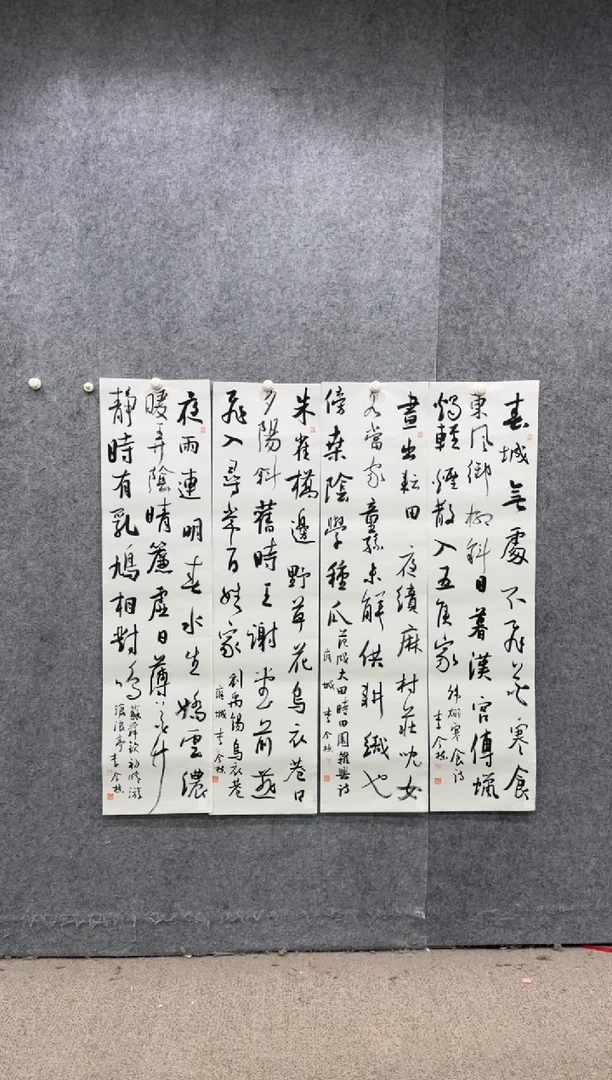 春城無處不飛花寒食
東風御柳斜日暮漢宮傳蠟
燭輕煙散入五侯家
韓翃寒食詩
李今栋
晝出耘田夜績麻村莊兒女
各當家童孫未解供耕織也
傍桑陰學種瓜
范成大田時田園雜興詩
城 李今栋
朱雀橋邊野草花烏衣巷口
夕陽斜舊時王謝堂前燕
飛入尋常百姓家
劉禹錫烏衣巷
城 李今栋
夜雨連明春水生嬌雲濃
暖弄陰晴簾虛日薄花竹
靜時有乳鳩相對鳴
蘇舜欽初晴游
滄浪亭 李今栋